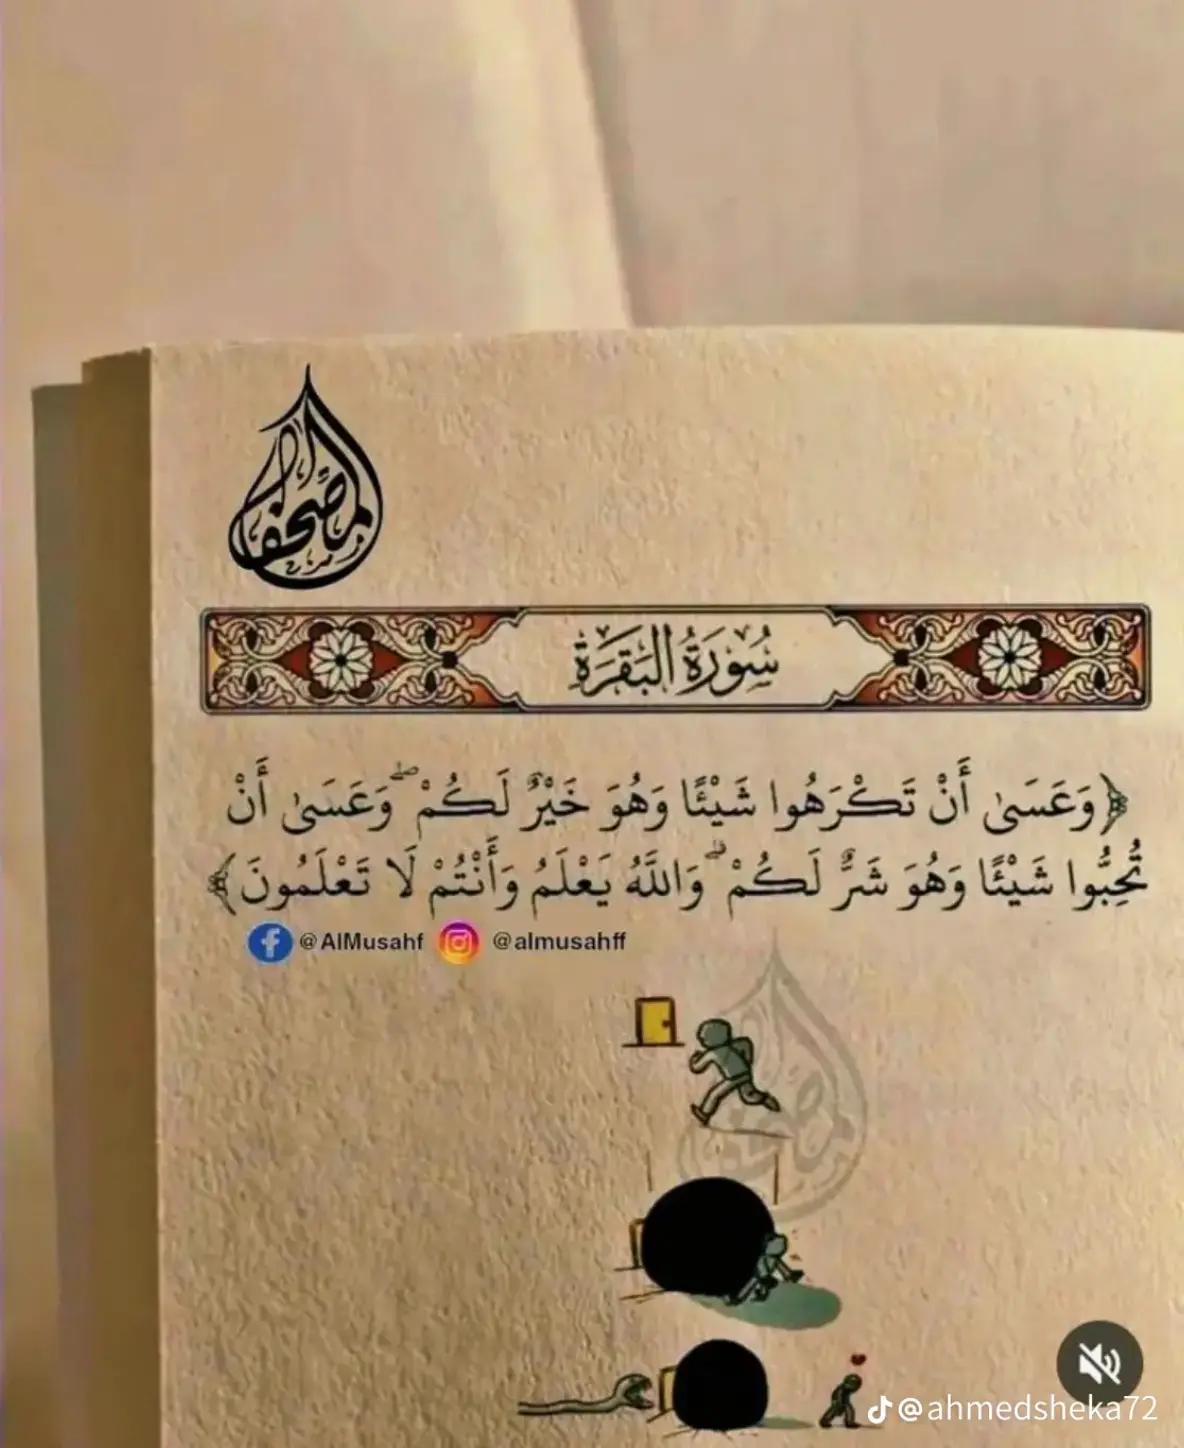 المصحف
سُورَةُ البَقَرَةِ
﴿وَعَسَىٰ أَنْ تَكْرَهُوا شَيْئًا وَهُوَ خَيْرٌ لَكُمْ ۖ وَعَسَىٰ أَنْ
تُحِبُّوا شَيْئًا وَهُوَ شَرٌّ لَكُمْ ۗ وَاللَّهُ يَعْلَمُ وَأَنْتُمْ لَا تَعْلَمُونَ﴾
@AlMusahf @almusahff
المصحف
@ahmedsheka72